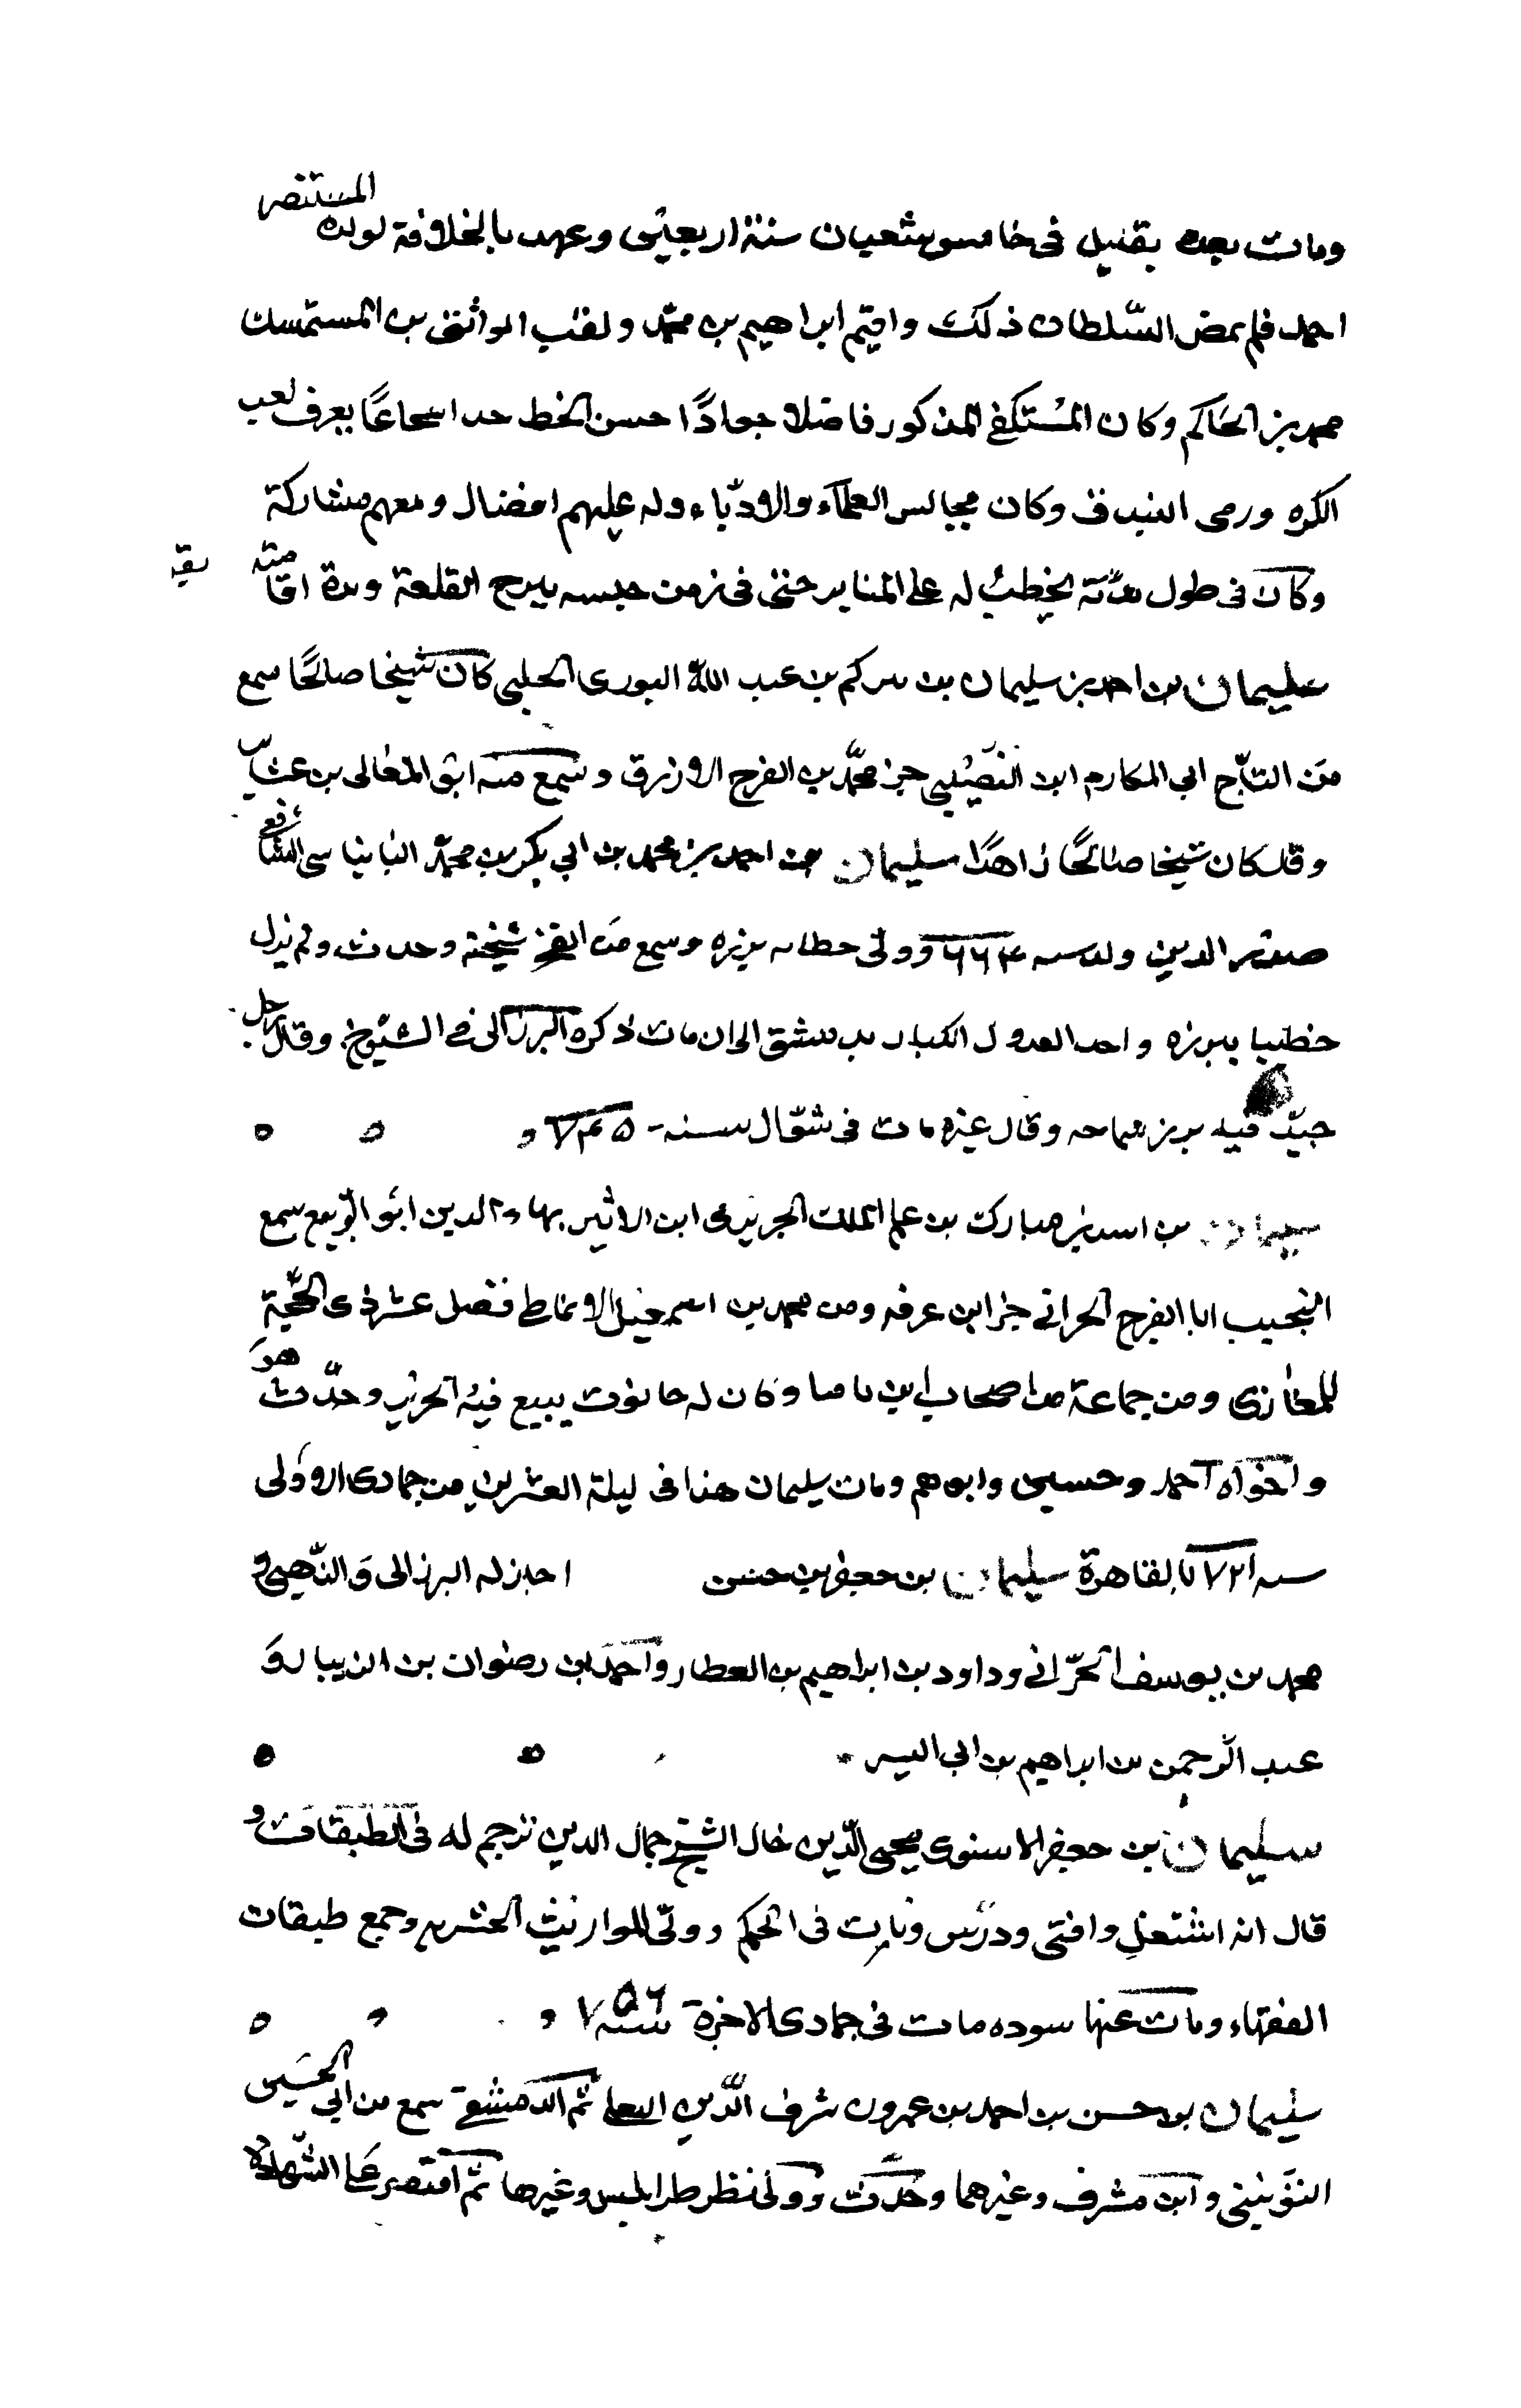 ومات بعده بقليل فى خامس شعبان سنة اربعين وعهد بالخلافة لولده المستنصر
احمد فلم يمض السلطان ذلك واقيم ابراهيم بن محمد ولقب الواثق بن المستمسك
محمد بن الحاكم وكان المستكفي المذكور فاضلا جوادًا حسن الخط جدا شجاعًا يعرف لعب
الكره ورمى البندق وكان يجالس العلماء والادباء وله عليهم افضال ومعهم مشاركة
وكان فى طول مدته يخطب له على المنابر حتى فى زمن حبسه ببرج القلعة ومدة اقامته
سليمان بن احمد بن سليمان بن عبد الله الحلبي كان شيخا صالحًا سمع
من التاج ابي المكارم ابن النصيبي جزء محمد بن الفرج الازرق وسمع منه ابو المعالى بن عشاير
وقال كان شيخا صالحًا زاهدًا سليمان بن احمد بن محمد بن ابي بكر بن محمد البانياسى الشافعي
صدر الدين ولد سنه ٦٦٤ وولى خطابه برزه وسمع من الفخر شيخته وحدث ولم يزل
خطيبا ببرزه واحد العدول الكبار بدمشق الى ان مات ذكره البرزالى في الشيوخ وقال رجل
جيد فيه وقال غيره مات فى شوال سنة ٧٤٥
سليمان بن اسد بن مبارك بن على الملك الجزيرى ابن الاثير بهاء الدين ابو الربيع سمع
النجيب ابا الفرج الحراني جزء ابن عرفه ومن محمد بن اسمعيل الانماطي فضل عشر ذى الحجة
ومن جماعة من اصحاب ابن باقا وكان له حانوت يبيع فيه الحرير وحدث هو
واخواه احمد وحسين وابوهم ومات سليمان هذا فى ليلة العشرين من جمادى الاولى
سنه ٧٢١ بالقاهرة سليمان بن جعفر بن حسن اجاز له البرزالى والذهبي و
محمد بن يوسف الحرّاني وداود بن ابراهيم بن العطار واحمد بن رضوان بن الزيبار و
عبد الرحمن بن ابراهيم بن ابى اليسر
سليمان بن جعفر الاسنوى محيى الدين خال الشيخ جمال الدين ترجم له فى الطبقات و
قال انه اشتغل وافتى ودرس وناب فى الحكم وولى المواريث الحشريه وجمع طبقات
الفقهاء ومات عنها سوده مات فى جمادى الاخرة سنة ٧٥٦
سليمان بن حسن بن احمد بن عمرون شرف الدين البعلى ثم الدمشقي سمع من ابي الحسين
اليونينى وابن مشرف وغيرهما وحدث وولى نظر طرابلس وغيرها ثم اقتصر على الشهادة